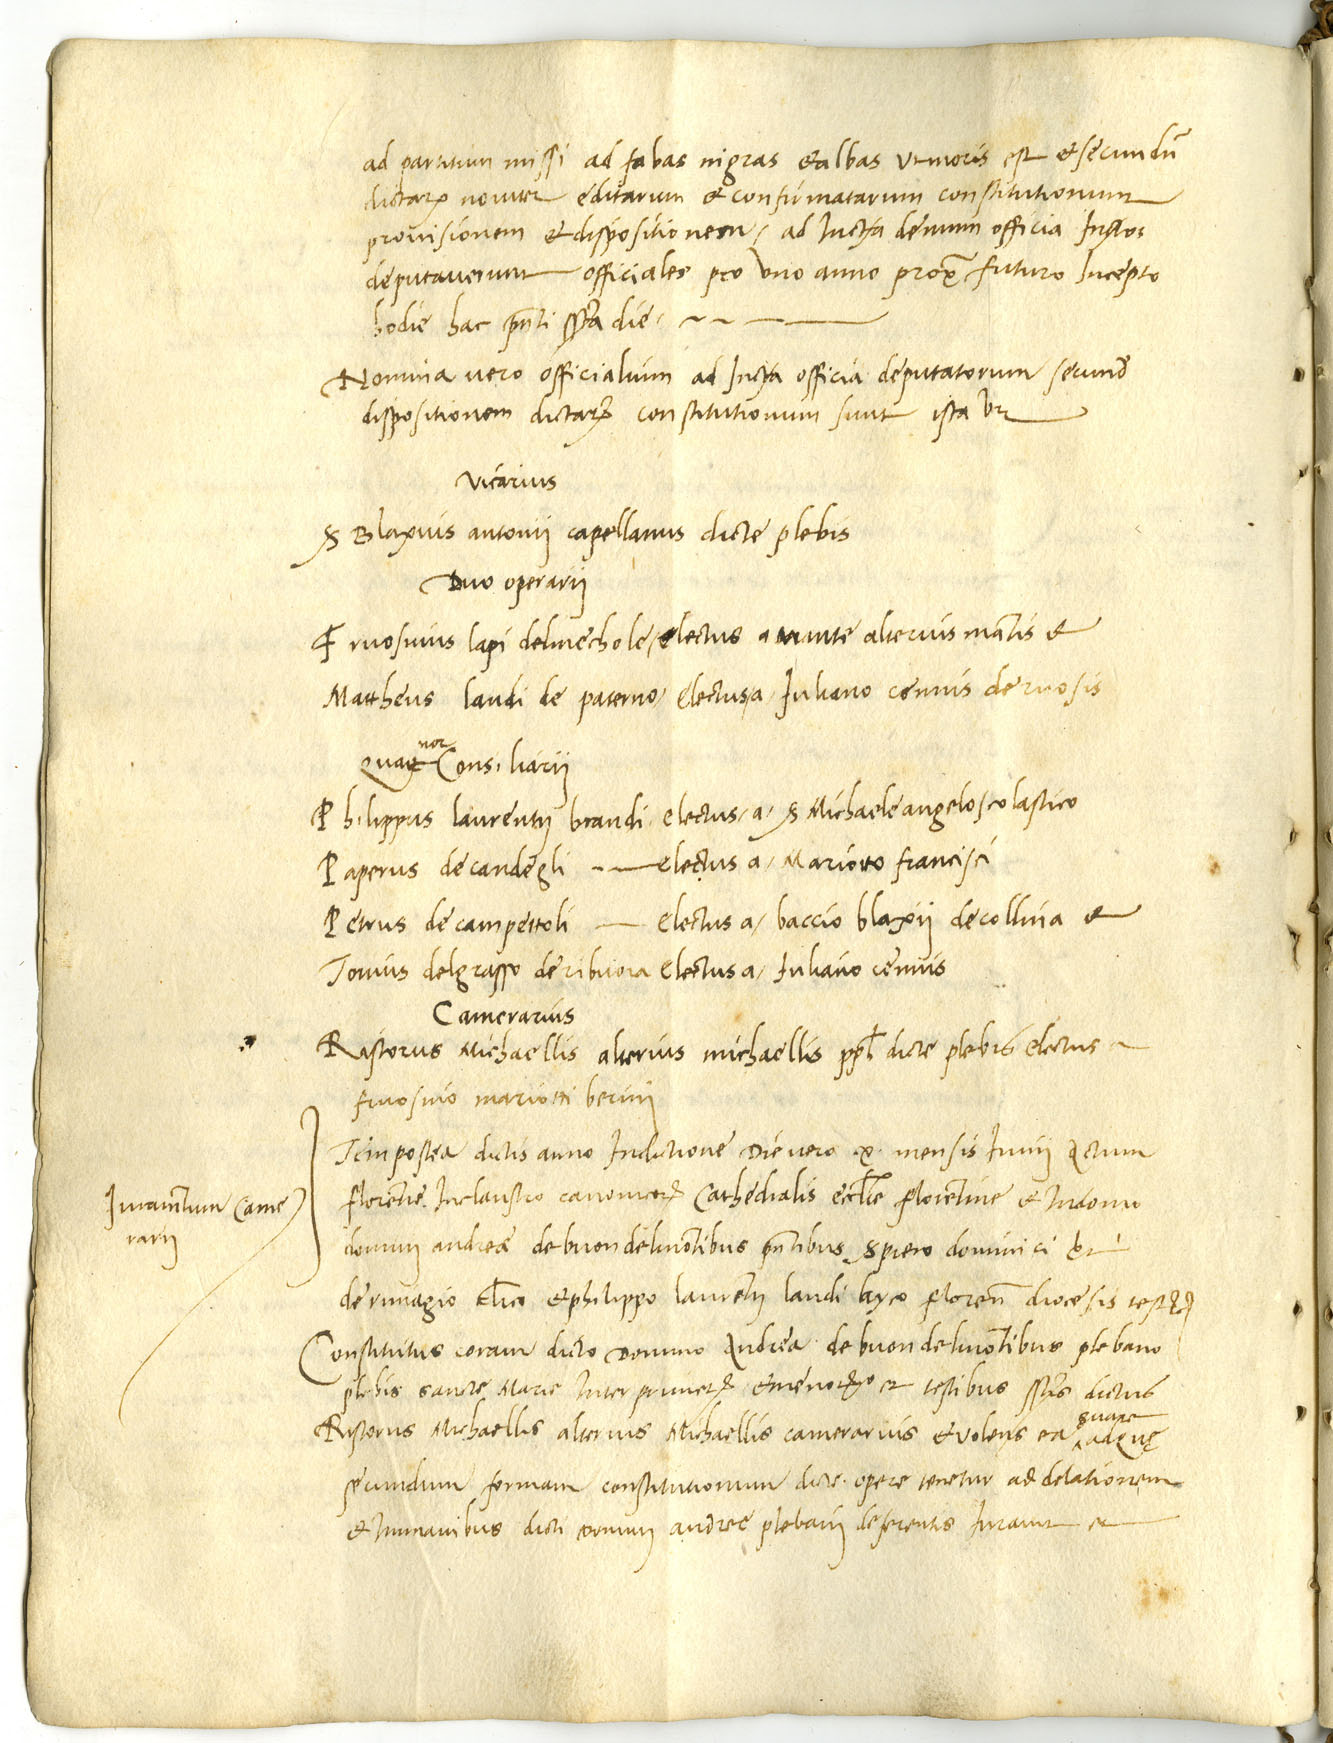 ad partitum missi ad fabas nigras et albas ut moris est et secundũ
dictarꝝ noviter editarum et confirmatarum constitutionum
provisionem et dispositionem / ad Incta demum officia Infros
deputaverunt officiales pro uno anno prox̃ futuro Incepto
hodie hac p̃nti sctã die
Nomina vero officialium ad Incta officia deputatorum secund
dispositionem dictarꝝ constitutionum sunt ista vz
Vicarius
S Blaxius antonij capellanus dicte plebis
Duo operarij
Fruosinus lapi del electus a alterius mãtis et
Mattheus landi de paterno / electus a / Iuliano cennis de ruosis
Quatuor Consiliarij
Philippus laurentij brandi electus / a / S Michaele angelo scolastico
Paperus de candegli electus a / Mariotto francisci
Petrus de campettoli electus a / baccio blaxij de collina et
Tonius del grasso de ribuoia electus a / Iuliano cennis
Camerarius
Ristorus Michaellis alterius michaellis ppli dicte plebis electus a
fruosino mariotti berini
Iuramẽtum Came
rarij
Item postea dictis anno Indictione Die vero x mensis Iunij Actum
florentie In claustro canonicorꝝ Cathedralis eccl̃ie florentine et In domo
domini andree de buondelmõtibus p̃ntibus S piero dominici
de rimagio cl̃ico et philippo laurentij landi layco floreñ diocesis testibus
Constitutus coram dicto Domino Andrea de buondelmõtibus plebano
plebis sancte Marie Inter et testibus sctis dictus
Ristorus Michaellis alterius Michaellis camerarius et volens ea
secundum formam constitutionum dicte opere tenetur ad delationem
et In manibus dicti domini andree plebani deferentis Iuravit et